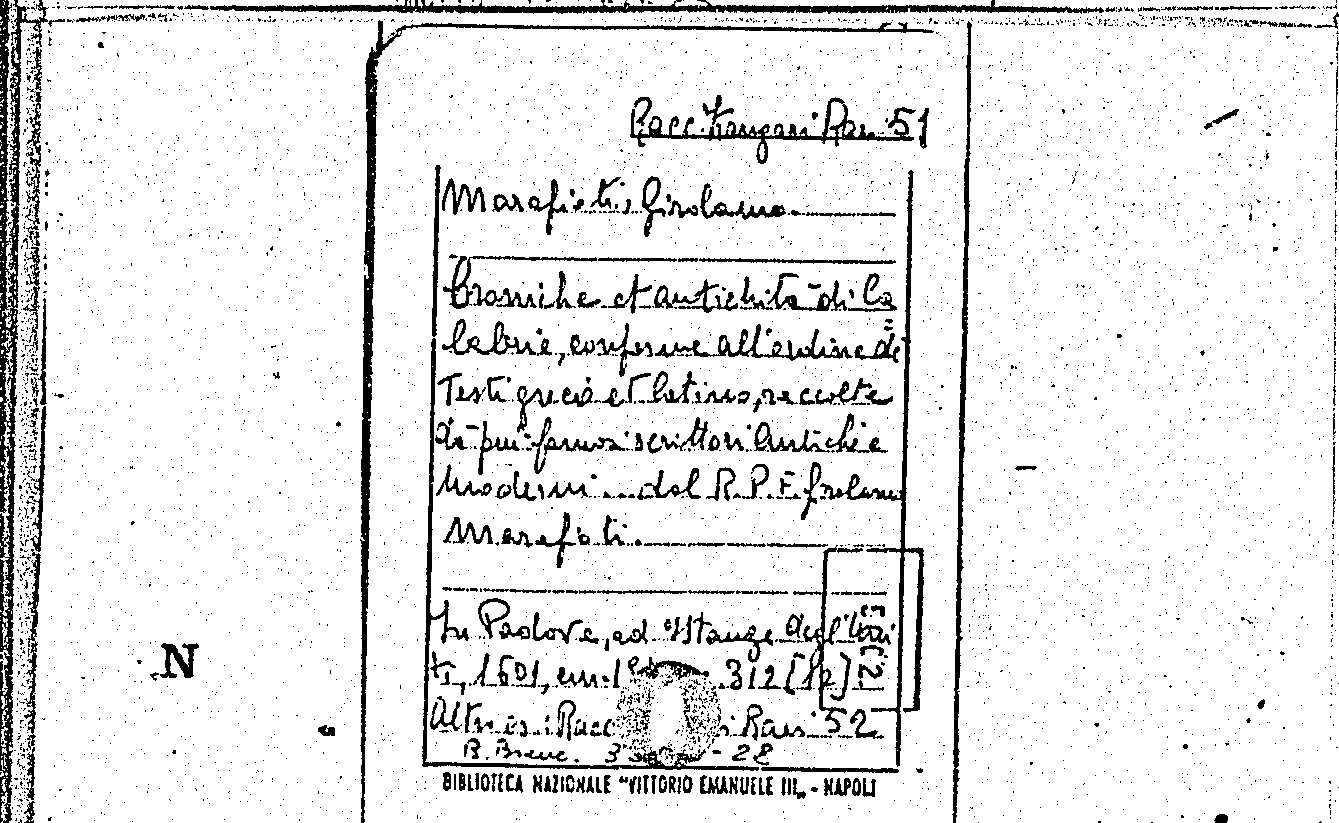 Racc. Zangari Rari 51
Marafioti, Girolamo.
Croniche et antichità di Ca
labria, conforme all'ordine de'
Testi greco et latino, raccolte
da' più famosi scrittori Antichi e
Moderni ... dal R. P. F. Girolamo
Marafioti.
In Padova, ad istanza degl'Uni
ti, 1601, cm. 312 [12]
Altri es: Racc Rari 52
B. Branc. 28
BIBLIOTECA NAZIONALE "VITTORIO EMANUELE III„ - NAPOLI
N